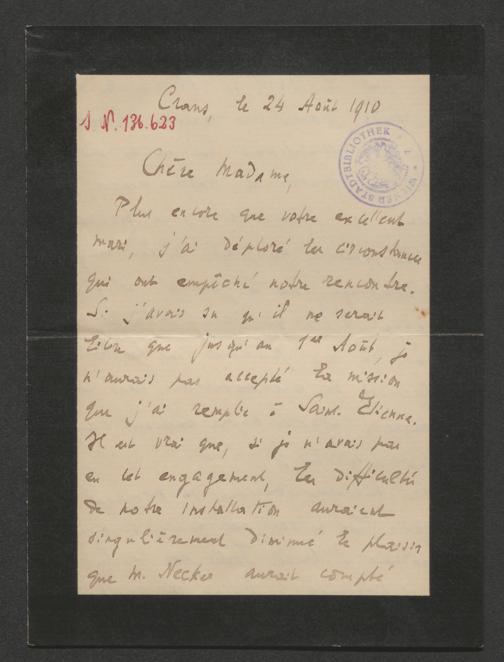 Crans, le 24 Août 1910
J. N. 136.623
WIENER STADTBIBLIOTHEK
Chère Madame,
Plus encore que votre excellent
mari, j'ai déploré les circonstances
qui ont empêché notre rencontre.
Si j'avais su qu'il ne serait
libre que jusqu'au 1er Août, je
n'aurais pas accepté la mission
que j'ai remplie à Saint-Etienne.
Il est vrai que, si je n'avais pas
eu cet engagement, les difficultés
de notre installation auraient
singulièrement diminué le plaisir
que M. Necker aurait compté